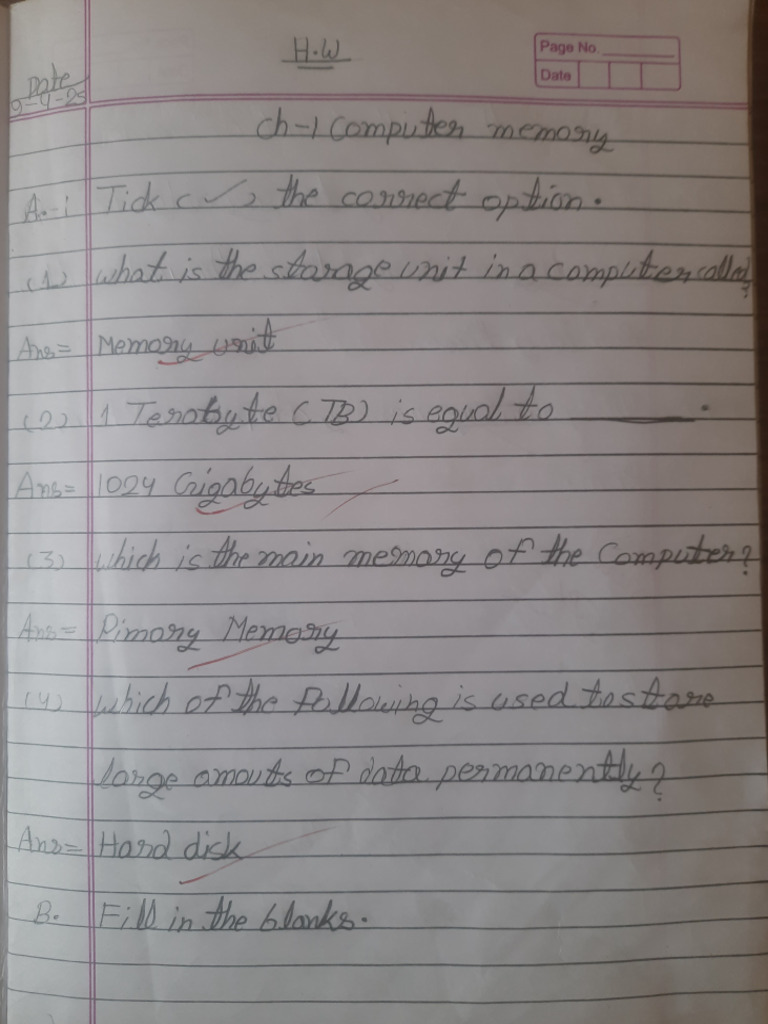 H.W
Page No.
Date
Date
9-4-25
Ch-1 Computer memory
A.-i Tick (✓) the correct option.
(1) What is the storage unit in a computer called?
Ans= Memory unit
(2) 1 Terabyte (TB) is equal to ______.
Ans= 1024 Gigabytes
(3) Which is the main memory of the Computer?
Ans= Pimary Memory
(4) Which of the following is used to store
large amouts of data permanently?
Ans= Hard disk
B. Fill in the blanks.